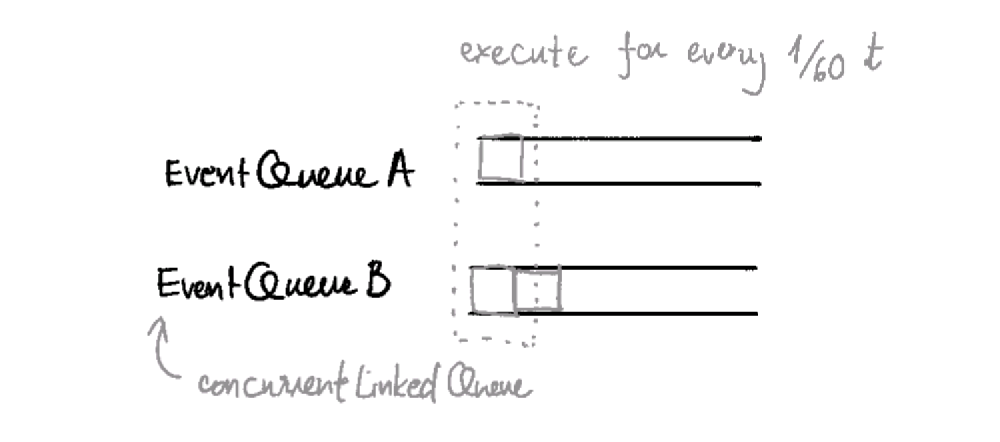 execute for every 1/60 t
Event Queue A
Event Queue B
concurrent Linked Queue